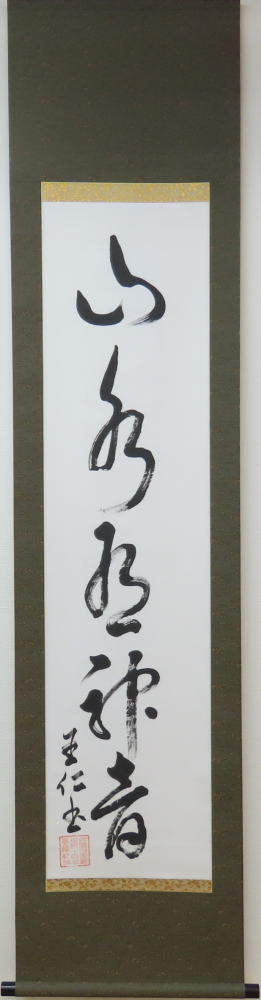 山水有神音
仁書